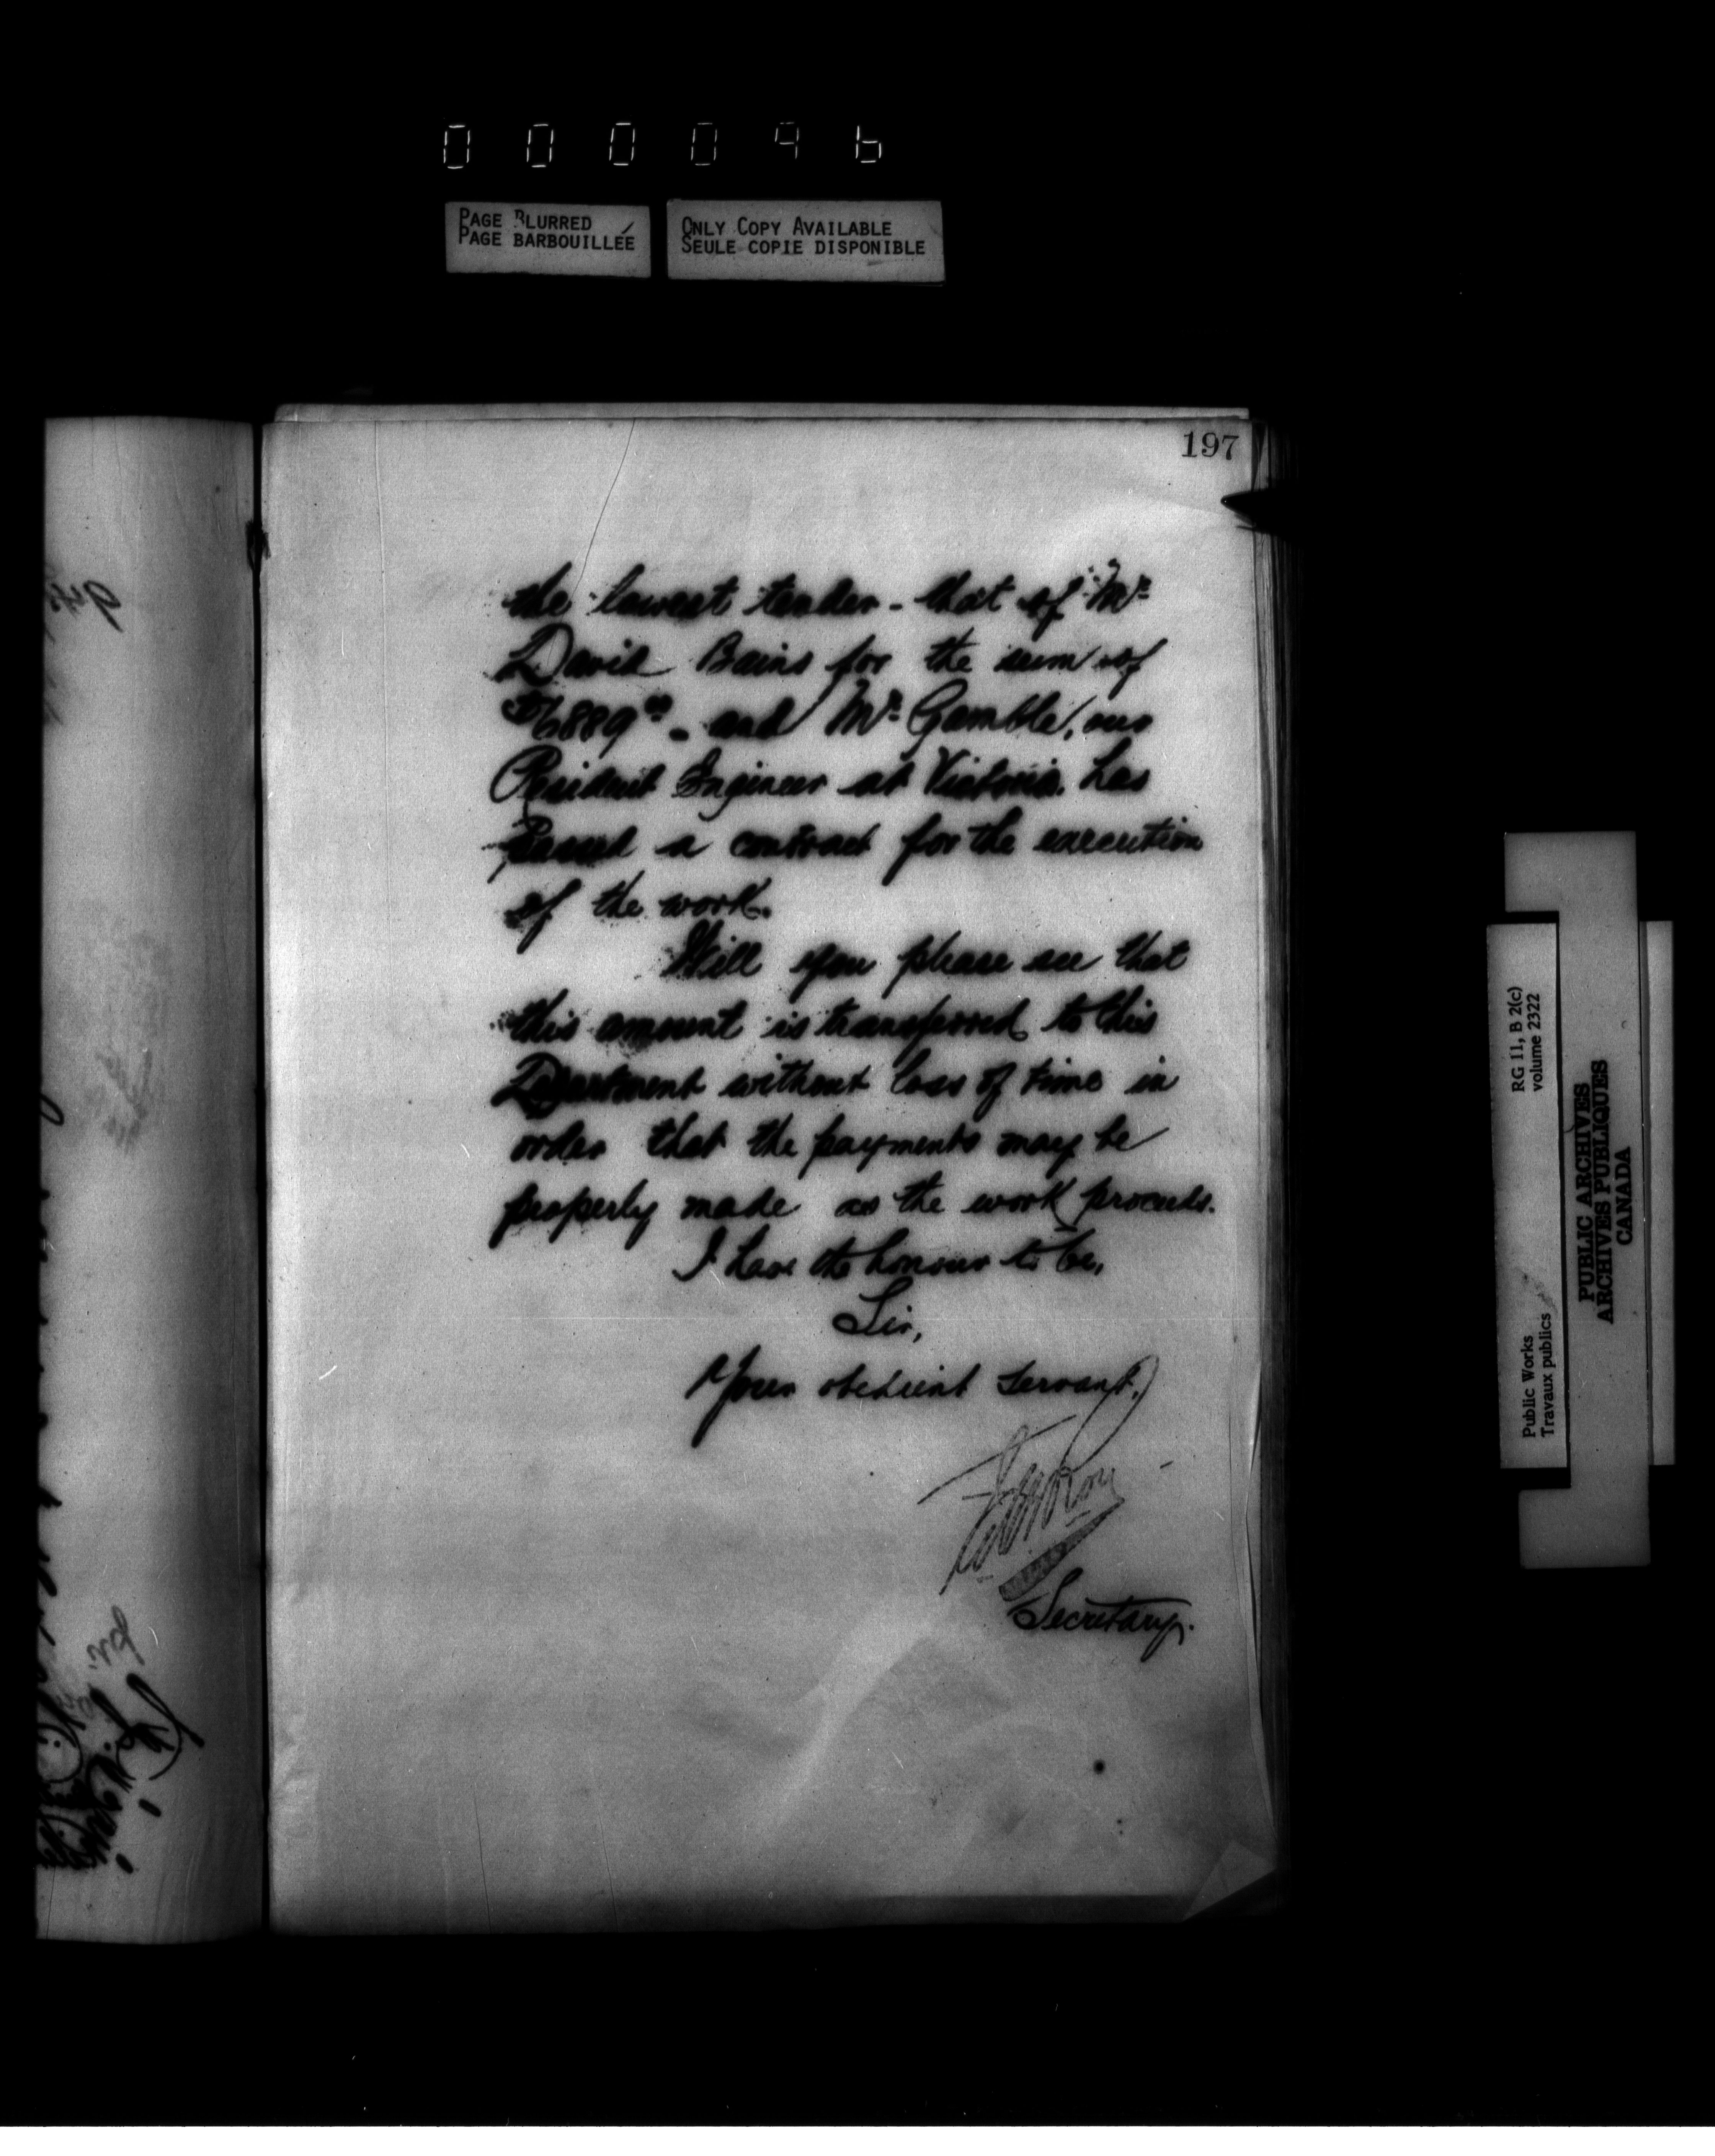 000096
PAGE BLURRED
PAGE BARBOUILLÉE
ONLY COPY AVAILABLE
SEULE COPIE DISPONIBLE
197
the lowest tender - that of Mr
David Bains for the sum of
$6889 00 - and Mr Gamble, our
Resident Engineer at Victoria, has
passed a contract for the execution
of the work.
Will you please see that
this amount is transferred to this
Department without loss of time in
order that the payments may be
properly made as the work proceeds.
I have the honour to be,
Sir,
Your obedient servant,
Secretary.
RG 11, B 2(c)
volume 2322
Public Works
Travaux publics
PUBLIC ARCHIVES
ARCHIVES PUBLIQUES
CANADA